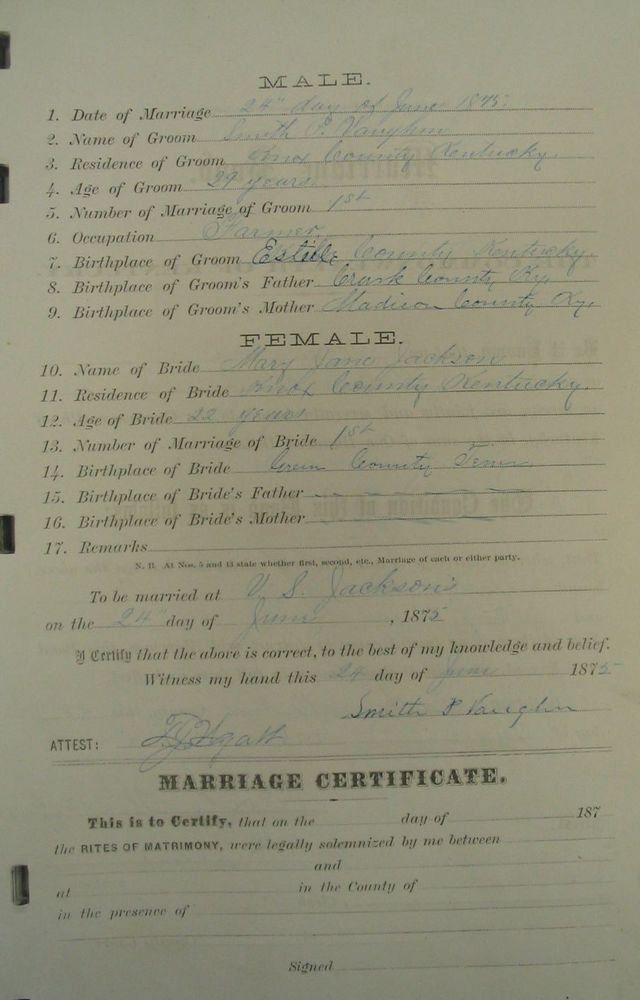 MALE.
1. Date of Marriage 24" day of June 1875.
2. Name of Groom Smith P. Vaughn
3. Residence of Groom Knox County Kentucky.
4. Age of Groom 29 years
5. Number of Marriage of Groom 1st
6. Occupation Farmer.
7. Birthplace of Groom Estille County Kentucky.
8. Birthplace of Groom's Father County Ky,
9. Birthplace of Groom's Mother Madison County Ky,
FEMALE.
10. Name of Bride Mary Jane Jackson
11. Residence of Bride Knox County Kentucky.
12. Age of Bride 22 years
13. Number of Marriage of Bride 1st
14. Birthplace of Bride County Tenn
15. Birthplace of Bride's Father
16. Birthplace of Bride's Mother
17. Remarks
N. B. At Nos. 5 and 13 state whether first, second, etc., Marriage of each or either party.
To be married at V. S. Jackson's
on the 24" day of June, 1875
I Certify that the above is correct, to the best of my knowledge and belief.
Witness my hand this 24 day of June 1875
Smith P Vaughn
ATTEST:
MARRIAGE CERTIFICATE.
This is to Certify, that on the day of 187
the RITES OF MATRIMONY, were legally solemnized by me between
and
at in the County of
in the presence of
Signed